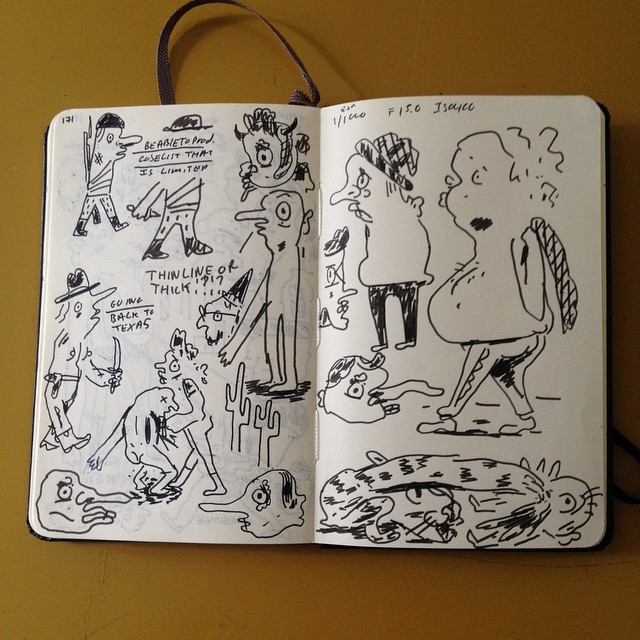 171
BE ABLE TO PROD.
CLOSE LIST THAT
IS LIMITED
THIN LINE OR
THICK!?!?....
GOING
BACK TO
TEXAS
1/1000 F/5.0 ISO400